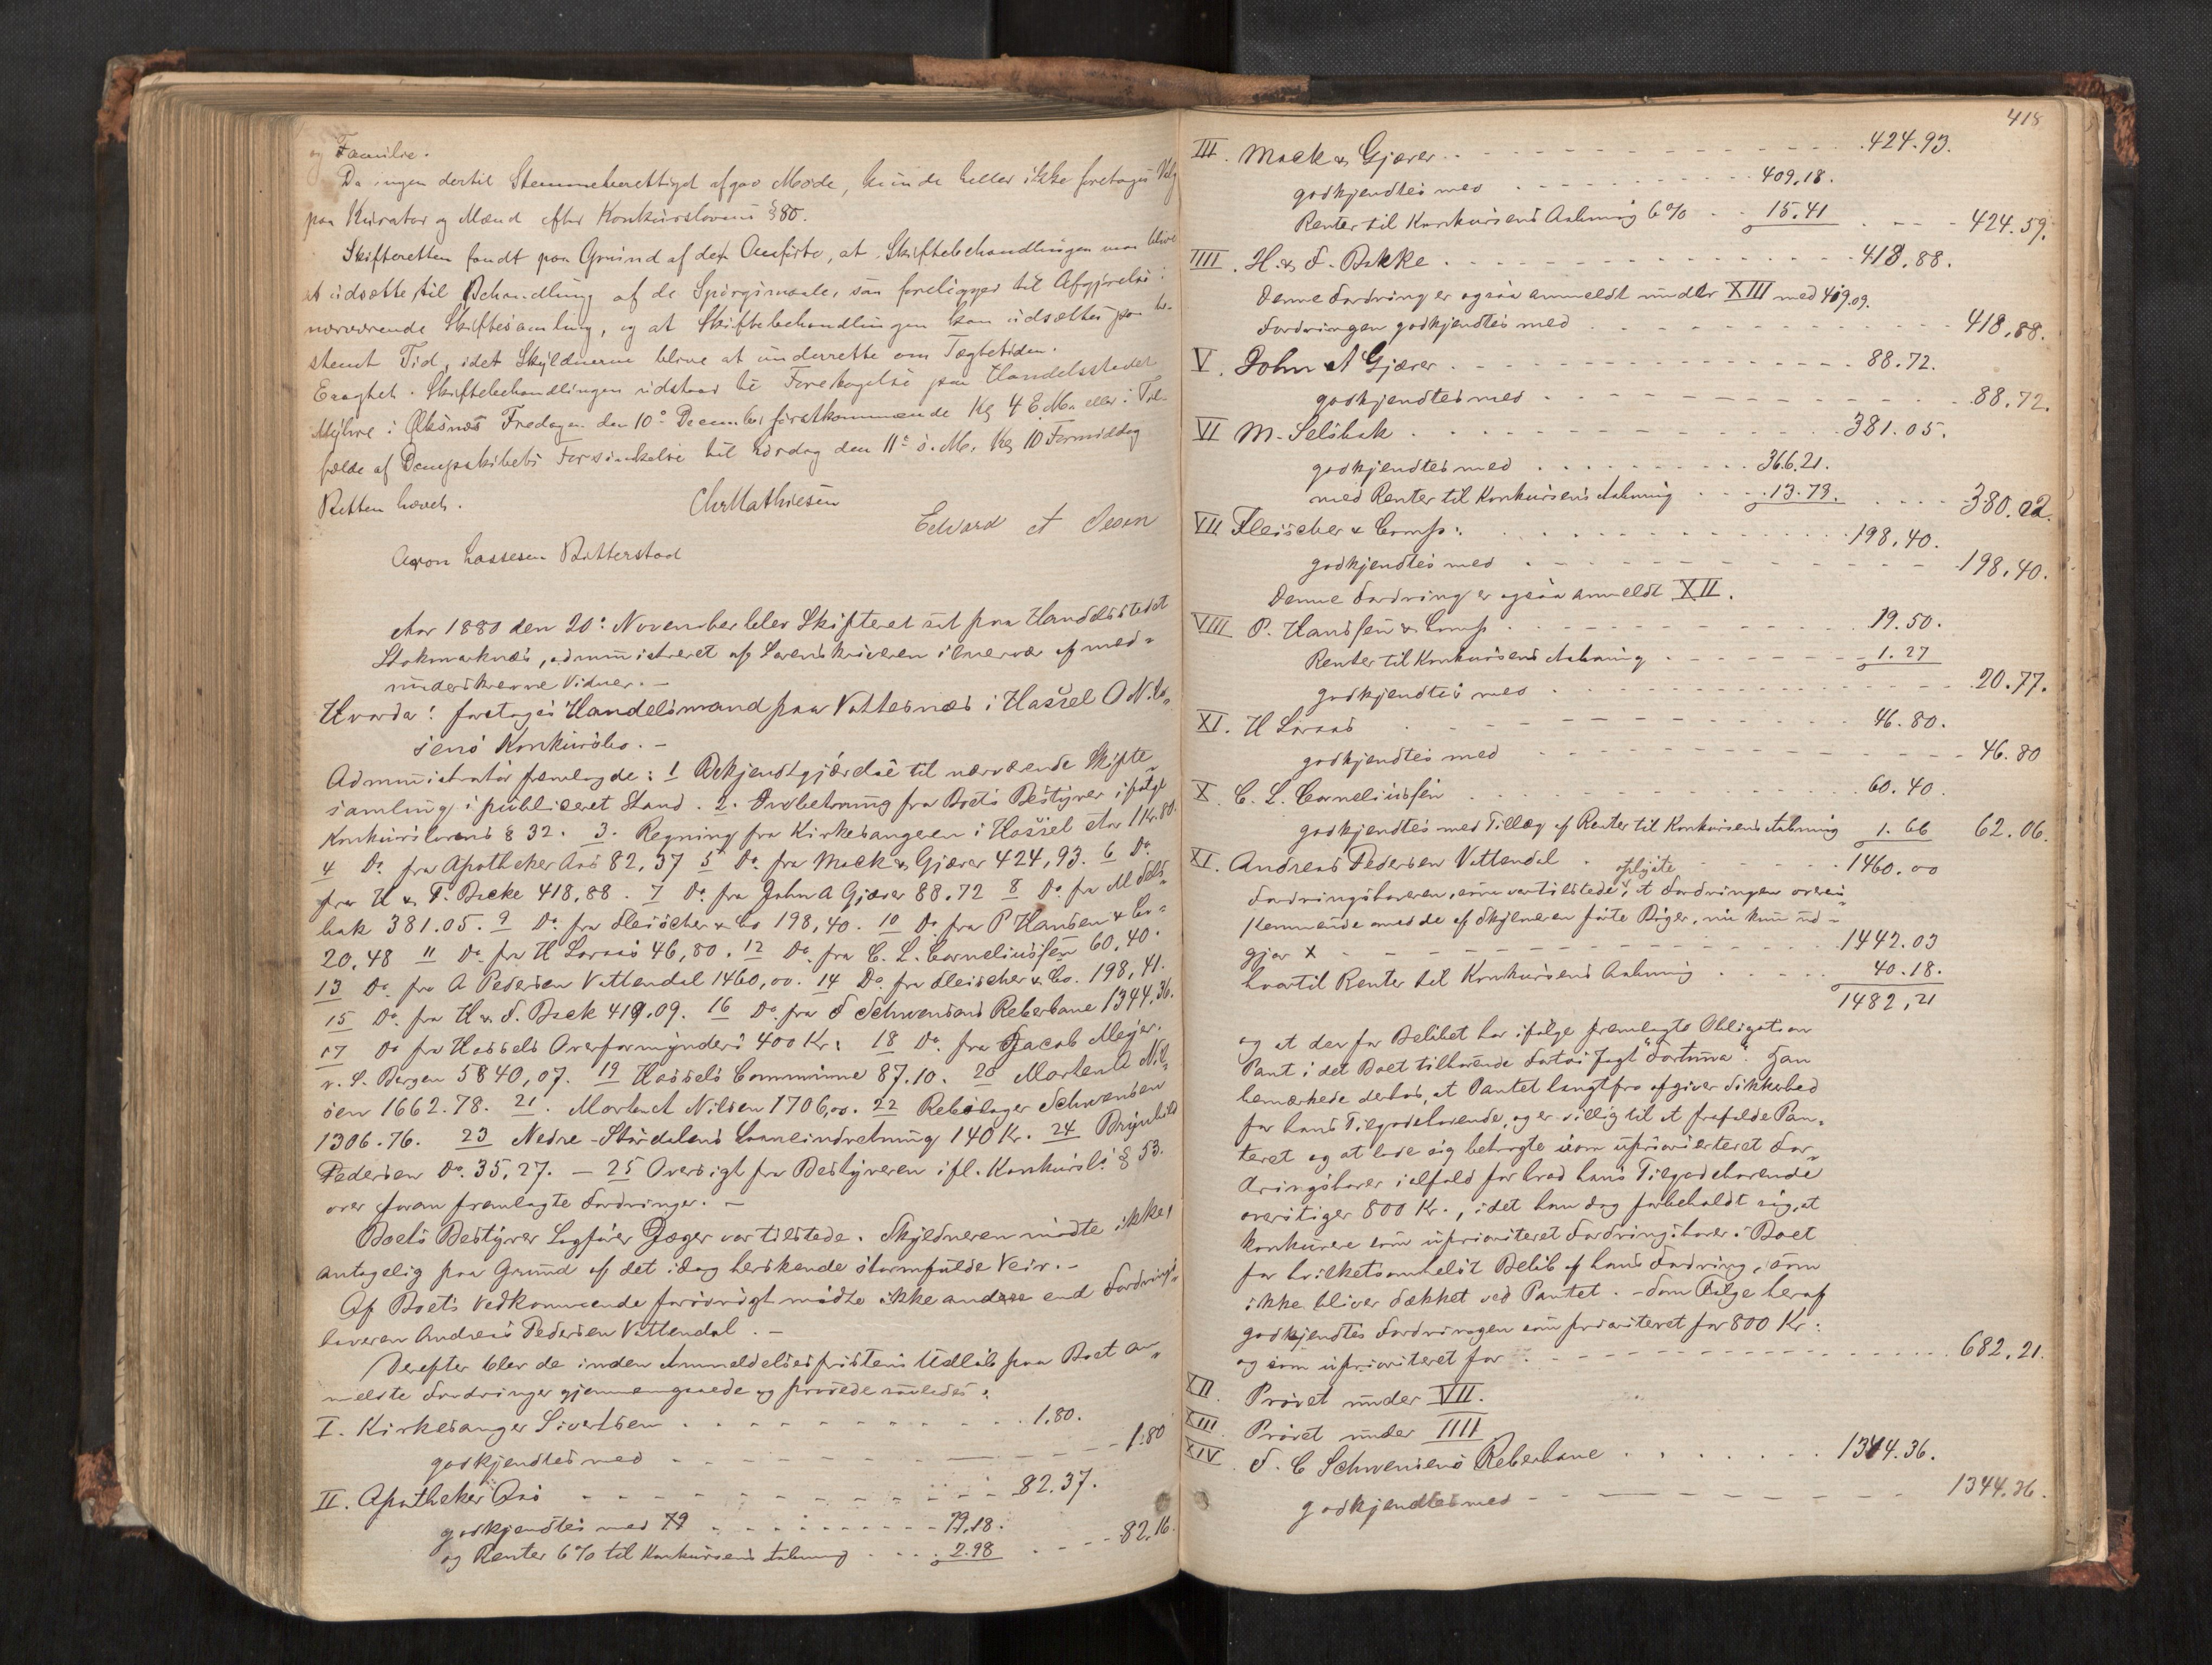 og Familie.
Da ingen dertil Stemmeberettiget afgav Møde, kunde heller ikke foretages Valg
paa Kurator og Mænd efter Konkurslovens § 80.
Skifteretten fandt paa Grund af det Anførte, at Skiftebehandlingen maa blive
at udsætte til Behandling af de Spørgsmaale, som foreligger til Afgjørelse i
nærværende Skiftesamling, og at Skiftebehandlingen kan udsættes paa be-
stemt Tid, idet Skyldnerne blive at underrette om Tægtetiden.
Eragtet. Skiftebehandlingen udstaar til Foretagelse paa Handelsstedet
Myhre i Øksnæs Fredagen den 10de December førstkommende Kl 4 E.M. eller i Til-
fælde af Dampskibets Forsinkelse til Lørdag den 11te s. M. Kl 10 Formiddag
Retten hævet.
Chr Mathiesen
Edvard A Olsen
Aron Lassesen Bitterstad
Aar 1880 den 20de November blev Skifteret sat paa Handelsstedet
Stokmarknæs, administreret af Sorenskriveren i Overvær af med-
underskrevne Vidner. –
Hvorda! foretoges Handelsmand paa Vottesnæs i Hassel O N. Ol-
sens Konkursbo. –
Administrator fremlagde: 1 Bekjendtgjørelse til nærværende Skifte-
samling i publiceret Stand. 2. Indberetning fra Boets Bestyrer ifølge
Konkurslovens § 32. 3. Regning fra Kirkesangeren i Hassel stor 1 Kr. 80.
4 Do. fra Apotheker Aas 82,37 5 Do. fra Mack & Gjæver 424,93. 6 Do.
fra H & F. Becke 418,88. 7 Do. fra John A Gjæver 88.72 8 Do. fra M Sels-
bak 381.05. 9 Do. fra Fleischer & Co 198,40. 10 Do. fra P Hansen & Co-
20.48 11 Do. fra H Loraas 46,80. 12 Do. fra C. L. Corneliussen 60,40.
13 Do. fra A Pedersen Vottendal 1460,00. 14 Do. fra Fleischer & Co. 198,41.
15 Do. fra H & F. Beck 419.09. 16 Do. fra F Schwensens Reberbane 1344.36.
17 Do fra Hassels Overformynderi 400 Kr. 18 Do. fra Jacob Meyer.
v. S. Bergen 5840,07. 19 Hassels Commune 87.10. 20 Morten A Nil-
sen 1662.78. 21. Morten A Nilsen 1706,00. 22 Rebslager Schwensen
1306.76. 23 Nedre-Størdalens Laaneindretning 140 Kr. 24 Brynhild
Pedersen Do. 35,27. – 25 Oversigt fra Bestyreren ifl. Konkursl: § 53.
over foran fremlagte Fordringer. –
Boets Bestyrer Sagfører Jæger var tilstede. Skyldneren mødte ikke,
antagelig paa Grund af det idag herskende stormfulde Veir. –
Af Boets Vedkommende forøvrigt mødte ikke andre end Fordrings-
haveren Andreas Pedersen Vottendal. –
Derefter blev de inden Anmeldelsesfristens Udløb paa Boet an-
meldte Fordringer gjennemgaaede og prøvede saaledes:
I. Kirkesanger Sivertsen 1,80.
godkjendtes med 1.80
II. Apotheker Aas 82.37.
godkjendtes med 79 79.18.
og Renter 6% til Konkursens Aabning 2.98 82.16.
418
III. Mack & Gjæver 424.93.
godkjendtes med 409,18.
Renter til Konkursens Aabning 6% 15.41 424.59.
IIII. H. & F. Bekke 418.88.
Denne Fordring er ogsaa anmeldt under XIII med 419.09.
Fordringen godkjendtes med 418,88.
V. John A Gjæver 88.72.
godkjendtes med 88.72.
VI M. Selsbak 381.05.
godkjendtes med 366.21.
med Renter til Konkursens Aabning 13.79. 380.02.
VII Fleischer & Comp: 198,40.
godkjendtes med 198,40.
Denne Fordring er ogsaa anmeldt XII.
VIII P. Hanssen & Comp 19.50.
Renter til Konkursens Aabning 1.27
godkjendtes med 20.77.
XI. H Loraas 46.80.
godkjendtes med 46.80
X. C. L. Corneliussen 60.40.
godkjendtes med Tillæg af Renter til Konkursens Aabning 1.66 62.06.
XI. Andreas Pedersen Vottendal 1460.00
oplyste
Fordringshaveren, som var tilstede, at Fordringen overens-
kommende med de af Skyldneren førte Bøger, nu kun ud-
gjør X 1442.03
hvortil Renter til Konkursens Aabning 40.18.
1482,21
og at der for Beløbet har ifølge fremlagte Obligation
Pant i det Boet tilhørende Fartøi Jagt "Fortuna". Han
bemærkede derhos, at Pantet langtfra afgiver Sikkerhed
for hans Tilgodehavende, og er villig til at frafalde Pan-
teret og at lade sig betragte som uprioriteret For-
dringshaver ialfald for hvad hans Tilgodehavende
overstiger 800 Kr., idet han dog forbeholdt sig, at
konkurere som uprioriteret Fordringshaver i Boet
for hvilketsomhelst Beløb af hans Fordring, som
ikke bliver dækket ved Pantet. – Som Følge heraf
godkjendtes Fordringen som prioriteret for 800 Kr.
og som uprioriteret for 682.21.
XII. Prøvet under VII.
XIII. Prøvet under IIII
XIV. F. C Schwensens Reberbane 1344.36.
godkjendtes med 1344.36.